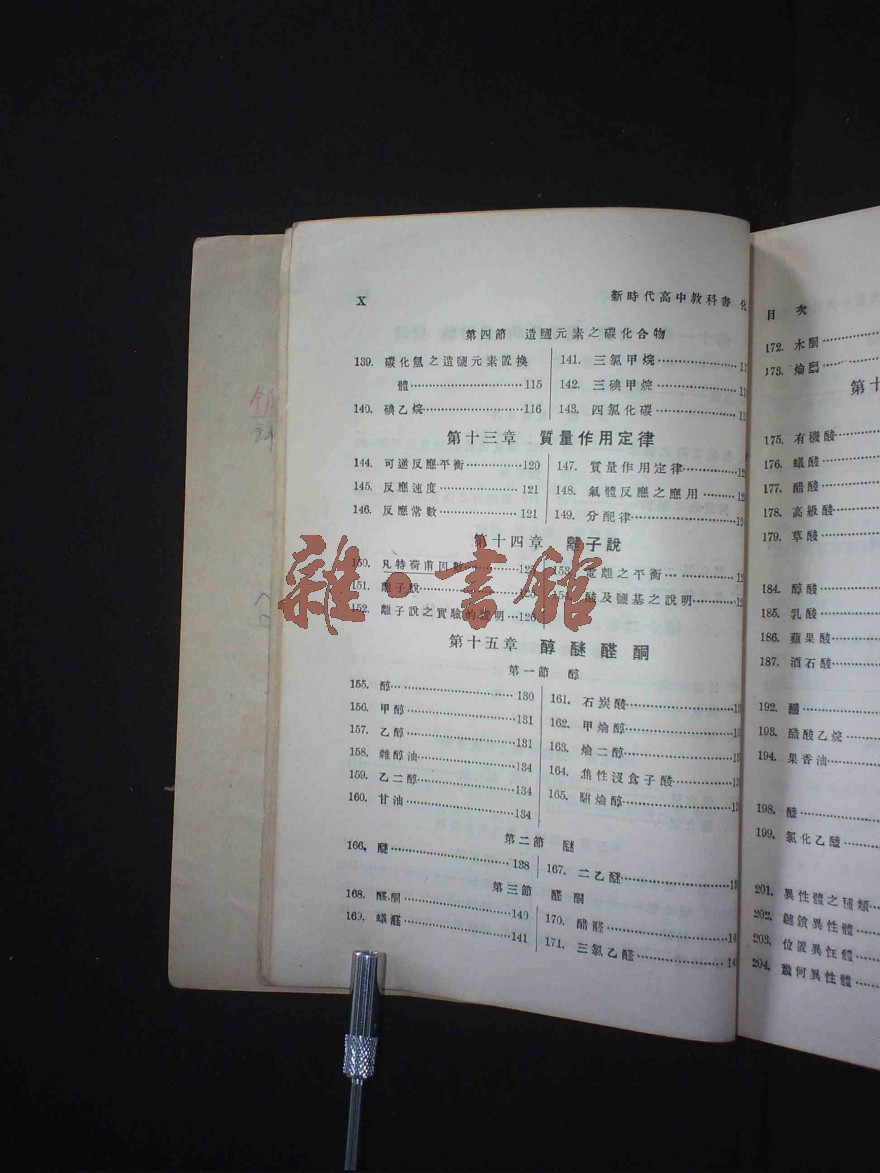 X
新時代高中教科書 化
第四節 造鹽元素之碳化合物
139. 碳化氫之造鹽元素置換
體 115
140. 碘乙烷 116
141. 三氯甲烷
142. 三碘甲烷
143. 四氯化碳
第十三章 質量作用定律
144. 可逆反應平衡 120
145. 反應速度 121
146. 反應常數 121
147. 質量作用定律
148. 氣體反應之應用
149. 分配律
第十四章 離子說
150. 凡特荷甫因數
151. 離子說
152. 離子說之實驗的證明 126
電離之平衡
酸及鹽基之說明
雜·書館
第十五章 醇醚醛酮
第一節 醇
155. 醇 130
156. 甲醇 131
157. 乙醇 131
158. 雜醇油 134
159. 乙二醇 134
160. 甘油 134
161. 石炭酸
162. 甲烚醇
163. 烚二醇
164. 焦性沒食子酸
165. 駢烚醇
第二節 醚
166. 醚 138
167. 二乙醚
第三節 醛酮
168. 醛酮 140
169. 蟻醛 141
170. 醋醛
171. 三氯乙醛
目 次
172. 木酮
173.
第十
175. 有機酸
176. 蟻酸
177. 醋酸
178. 高級酸
179. 草酸
184. 醇酸
185. 乳酸
186. 蘋果酸
187. 酒石酸
192.
193. 醋酸乙烷
194. 果香油
198.
199. 氯化乙醯
201. 異性體之種類
202. 鏈鎖異性體
203. 位置異性體
204. 幾何異性體